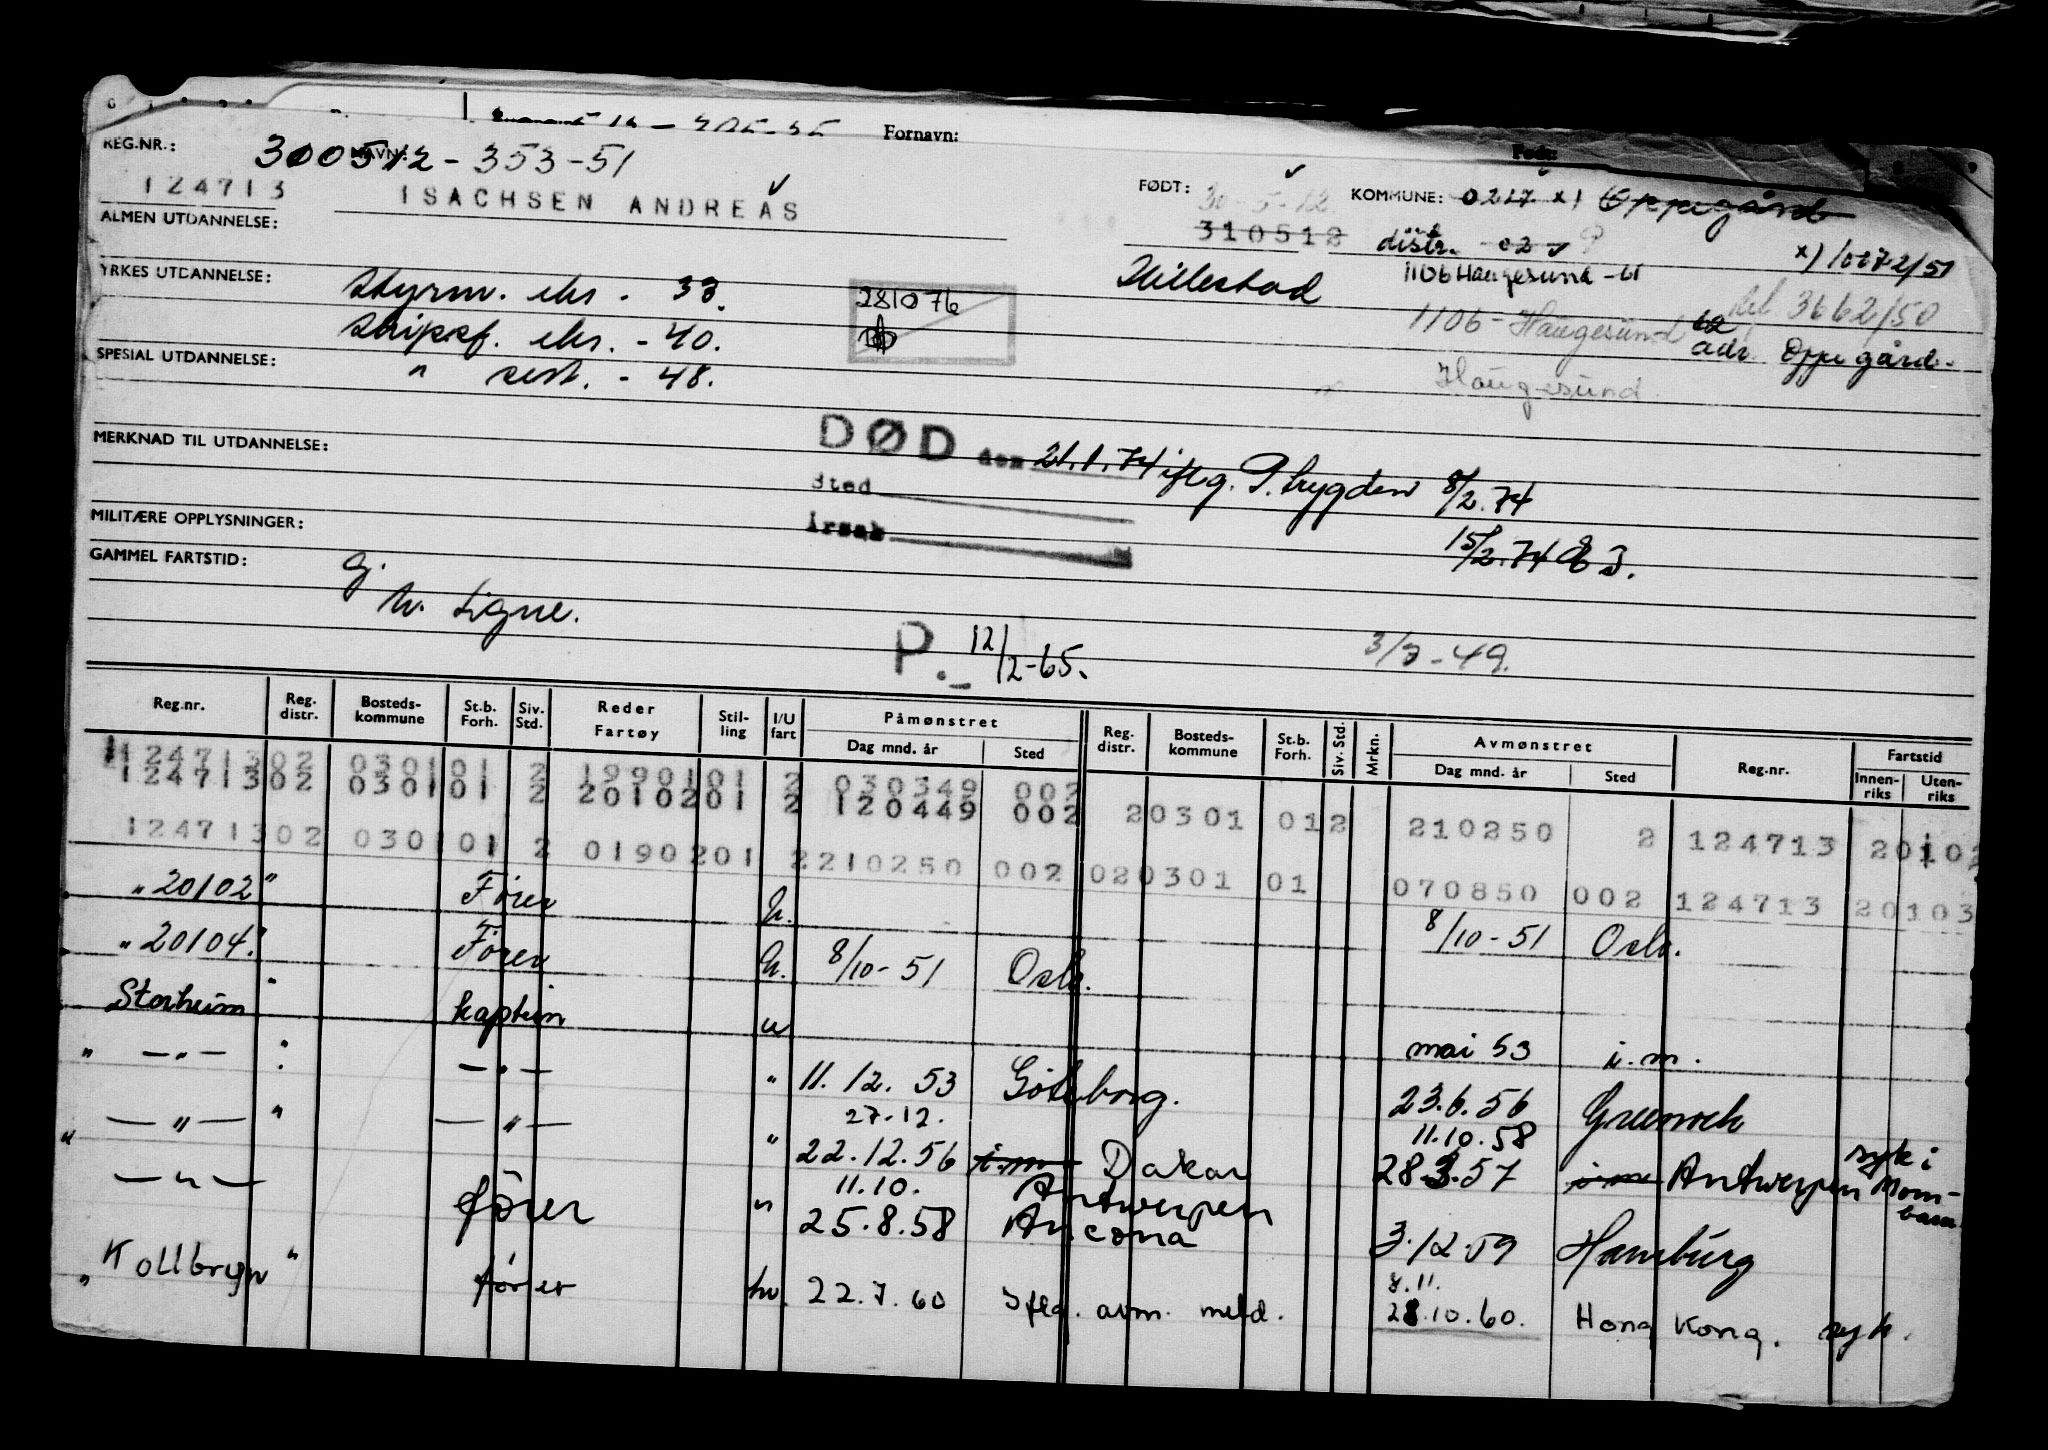 Fornavn:
REG.NR.: 300512-353-51
124713 ISACHSEN ANDREAS FØDT: 30-5-12 KOMMUNE: 0217 x) Oppegård
ALMEN UTDANNELSE: 310512 distr. 02 x) 10072/51
YRKES UTDANNELSE: styrm. eks. 33. 281076 Hillestad 1106 Haugesund -61
skipsf. eks. -40. 1106-Haugesund 3662/50
adr. Oppegård.
SPESIAL UTDANNELSE: " sert. -48. Haugesund
MERKNAD TIL UTDANNELSE: DØD den 21.1.74 iflg. P.trygden 8/2.74
Sted
MILITÆRE OPPLYSNINGER: Årsak 15/2.74
GAMMEL FARTSTID:
P. 12/2-65. 3/3-49.
Reg.nr. Reg. distr. Bosteds- kommune St.b. Forh. Siv. Std. Reder Fartøy Stil- ling I/U fart Påmønstret Reg. distr. Bosteds- kommune St.b. Forh. Siv. Std. Mrkn. Avmønstret Reg.nr. Fartstid
Dag mnd. år Sted Dag mnd. år Sted Innen- riks Uten- riks
124713 02 0301 01 2 19901 01 2 030349 002
124713 02 0301 01 2 20102 01 2 120449 002 20301 01 2 210250 2 124713 20102
124713 02 0301 01 2 01902 01 2 210250 002 02 0301 01 070850 002 124713 20103
"20102" Fører u. 8/10-51 Oslo.
"20104" Fører u. 8/10-51 Oslo.
Storheim " kaptein u mai 53 i.m.
" —"— " —"— " 11.12.53 Göteborg. 23.6.56 Greenock
27.12. 11.10.58
—"— " —"— " 22.12.56 i.m Dakar 28.3.57 i.m Antwerpen syk i Mom- basa
11.10. Antwerpen
" —"— fører " 25.8.58 Ancona 3.12.59 Hamburg
8.11.
" Kollbryn " fører u. 22.7.60 Iflg. avm. meld. 28.10.60. Hong Kong. syk.